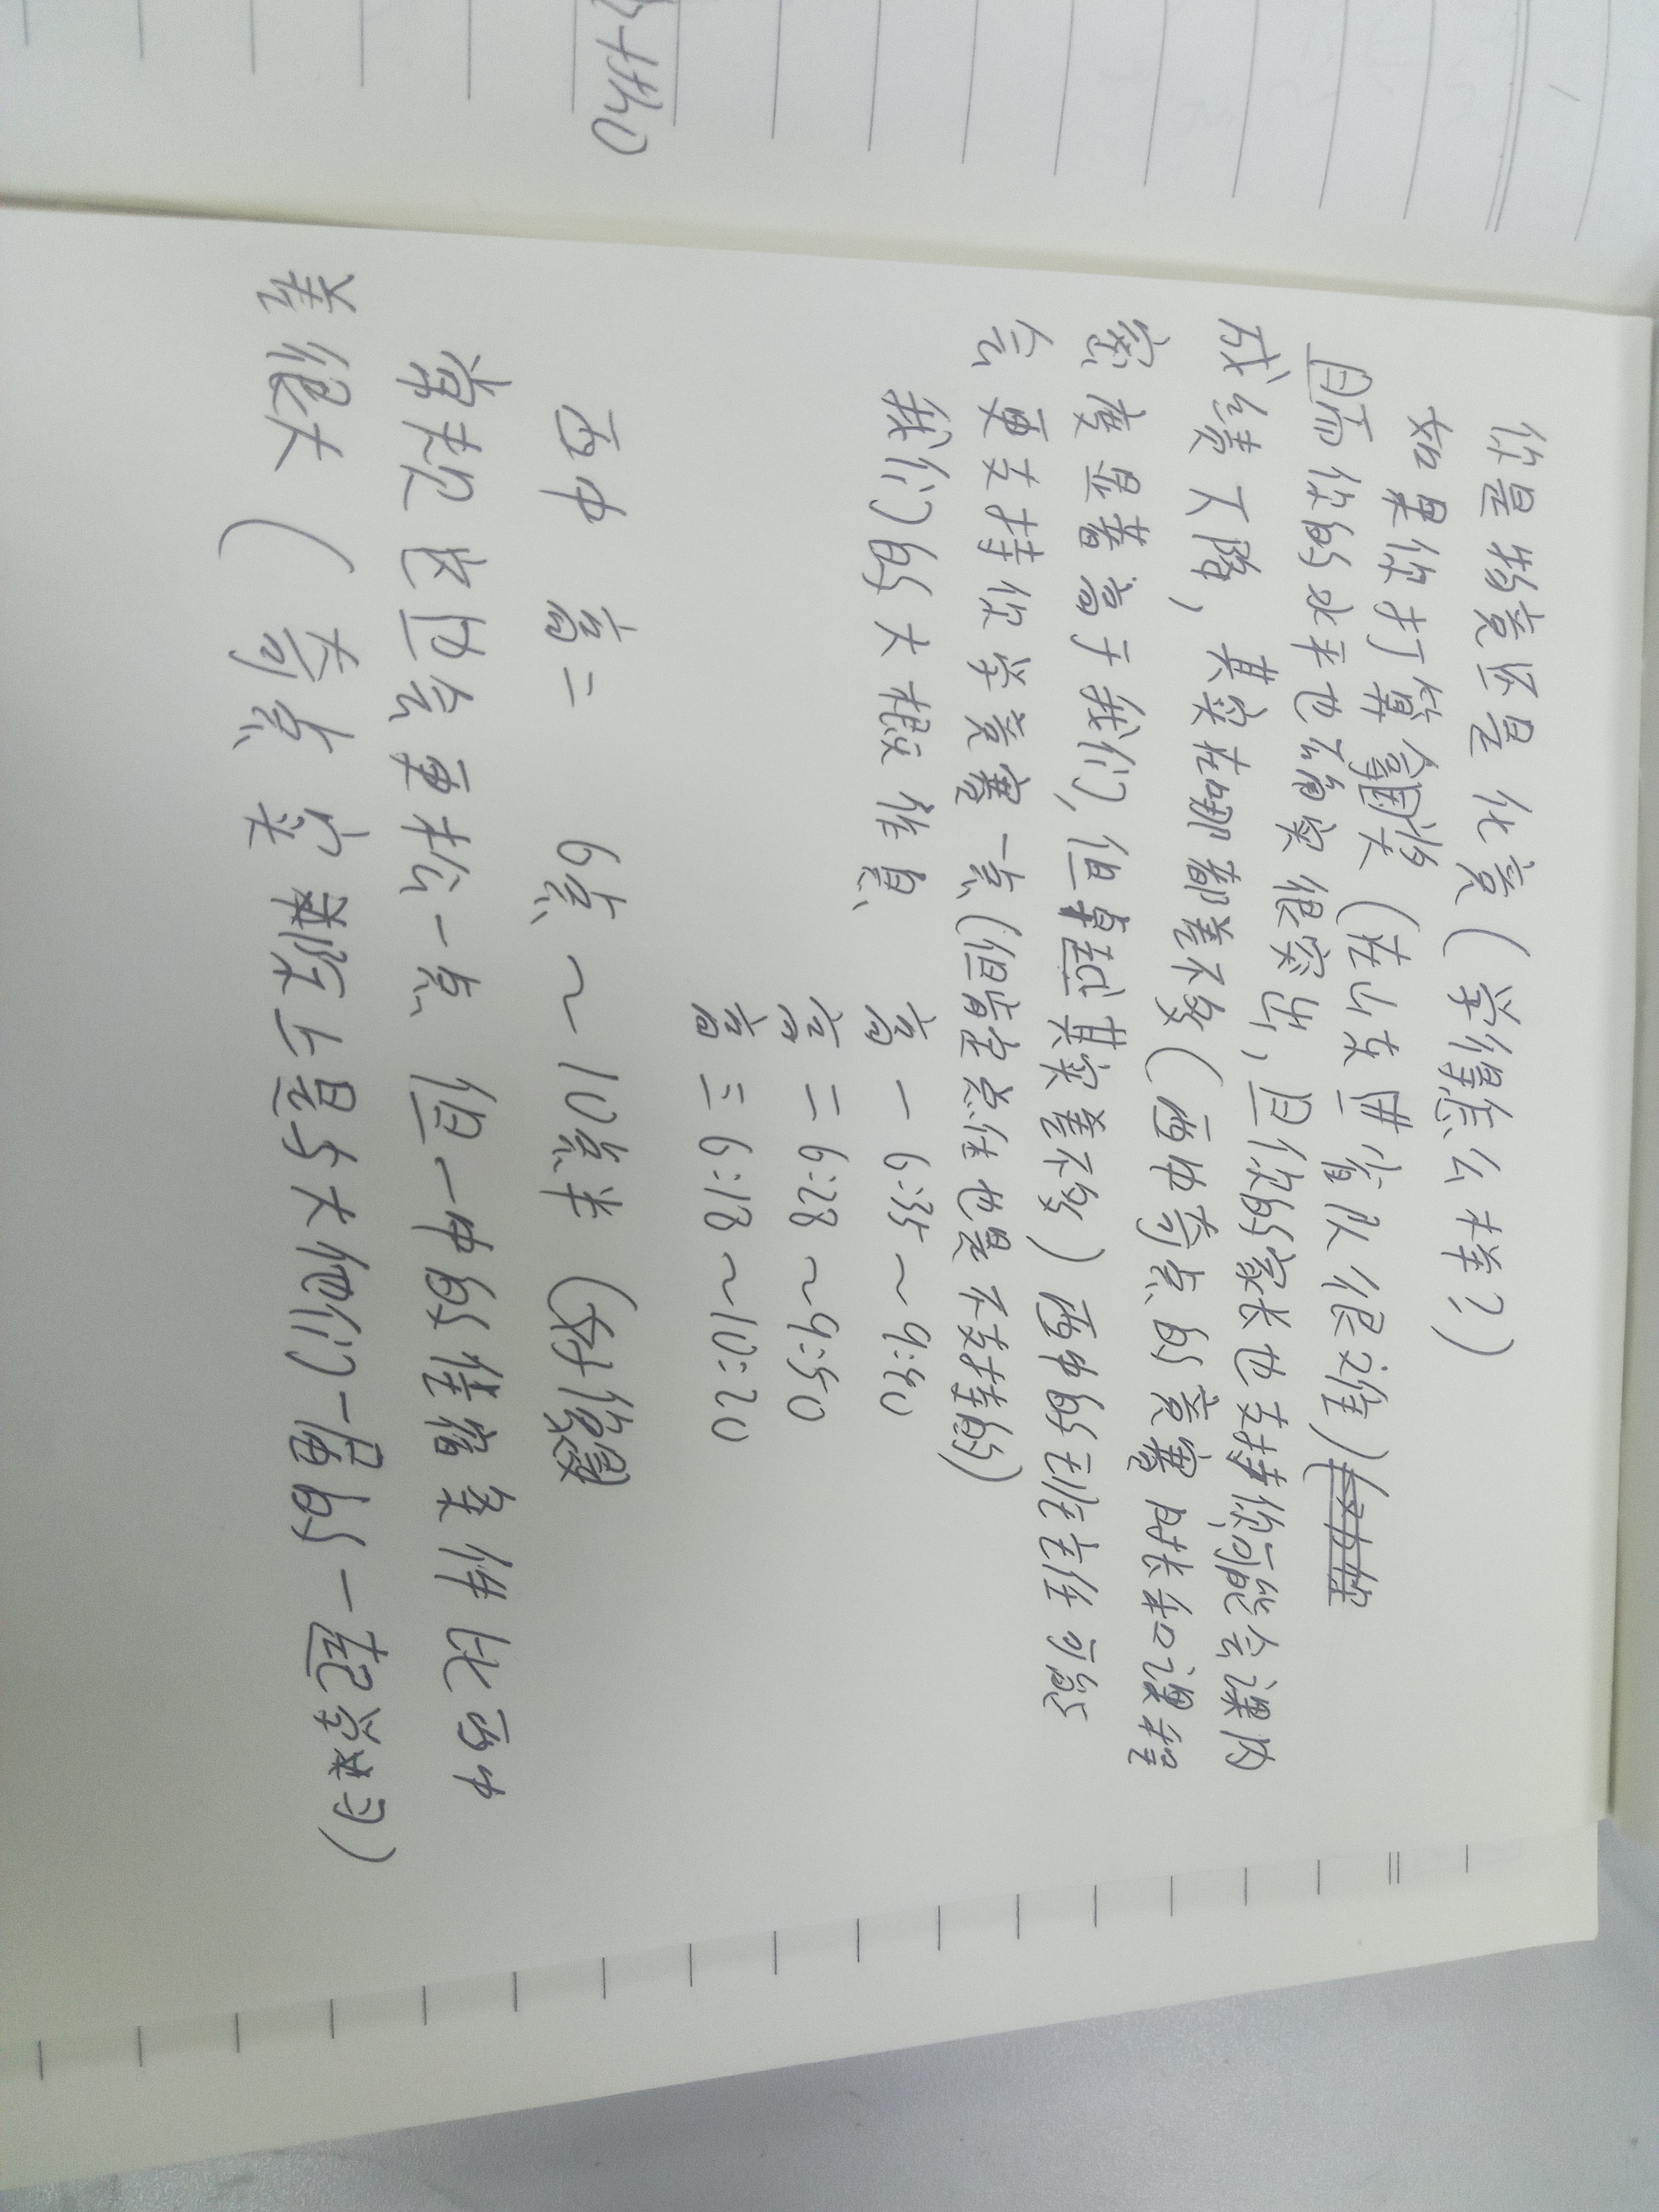 你是物竞还是化竞(学得怎么样?)
如果你打算拿国奖(在山东进省队很难)
且而你的水平也确实很突出,且你的家长也支持你可能会课内
成绩下降,其实在哪都差不多(西中奇点的竞赛时长和课程
密度显著高于我们,但卓越其实差不多)西中的班主任可能
会更支持你学竞赛一点(但肯定总体也是不支持的)
我们的大概作息
高一 6:35~9:40
高二 6:28~9:50
高三 6:18~10:20
西中 高二 6点~10点半(好像
常规它们会更松一点 但一中的住宿条件比西中
差很大(奇点实际上是与大他们一届的一起学习)